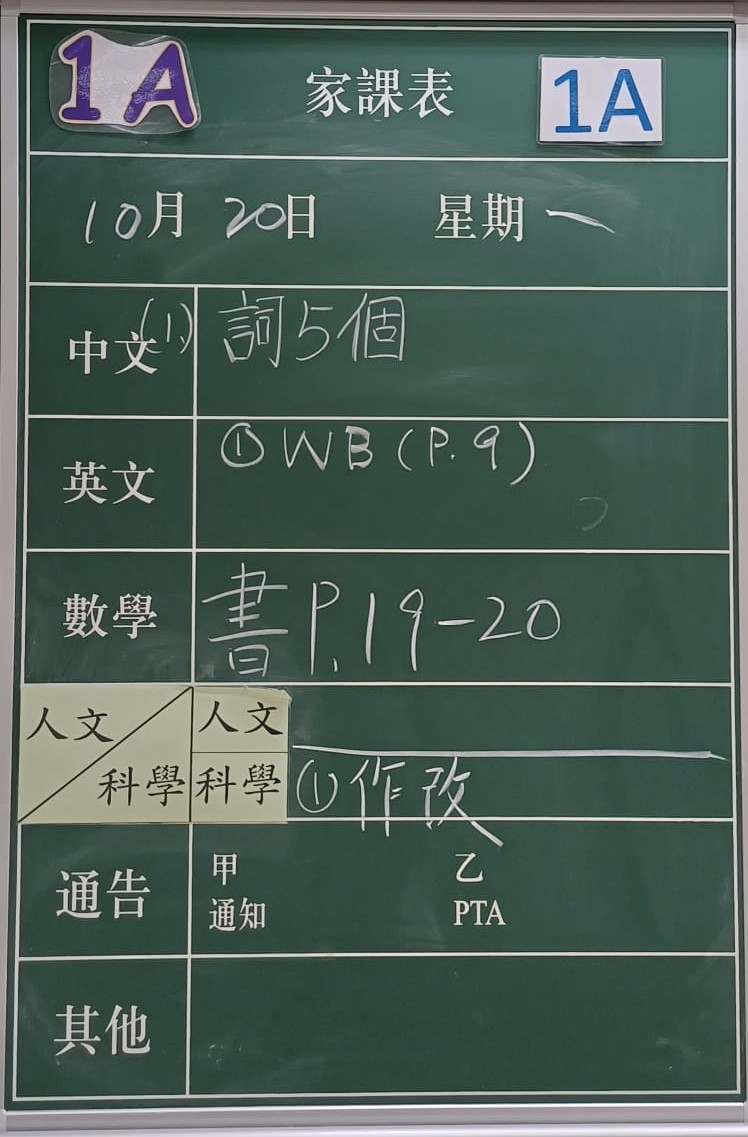 1A 家課表 1A
10月 20日 星期一
中文 (1) 詞5個
英文 ① WB (P.9)
數學 書 P.19-20
人文 人文
科學 科學 ① 作改
通告 甲 乙
通知 PTA
其他